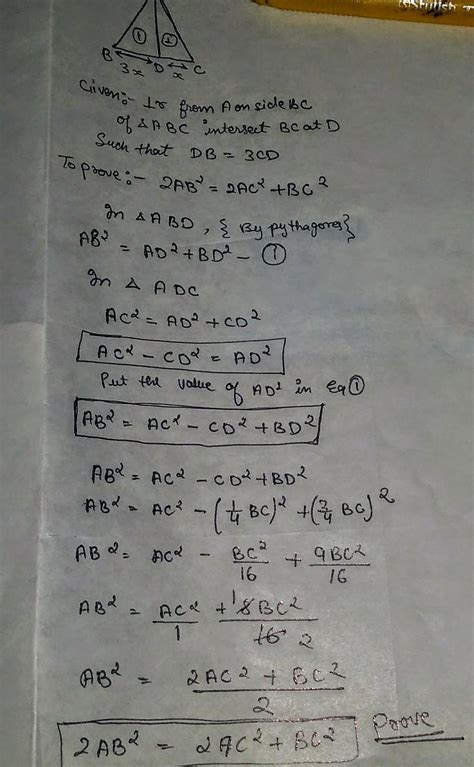 ① ②
B 3x D x C
Given:- ⊥r from A on side BC
of △ABC intersect BC at D
Such that DB = 3CD
To prove:- 2AB² = 2AC² + BC²
In △ ABD, { By pythagores}
AB² = AD² + BD² - ①
In △ ADC
AC² = AD² + CD²
AC² - CD² = AD²
Put the value of AD² in eq ①
AB² = AC² - CD² + BD²
AB² = AC² - CD² + BD²
AB² = AC² - (1/4 BC)² + (3/4 BC)²
AB² = AC² - BC²/16 + 9BC²/16
AB² = AC²/1 + 1 8BC²/16 2
AB² = 2AC² + BC²/2
2AB² = 2AC² + BC² Prove